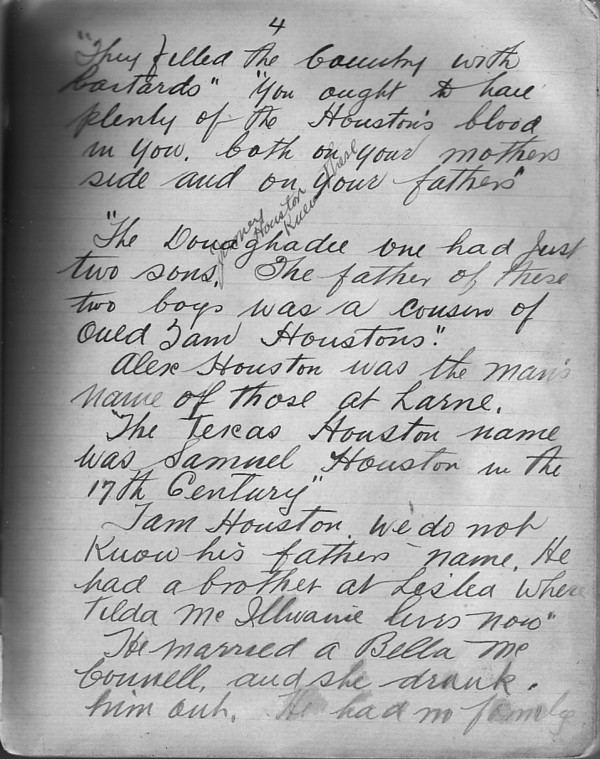 4
"They filled the Country with
bastards" "You ought to have
plenty of the Houston's blood
in you. both on your mothers
side and on your fathers"
Houston
Knew these
"The Donaghadee one had Just
two sons. The father of these
two boys was a cousin of
Ould Tam Houstons."
Alex Houston was the man's
name of those at Larne.
"The Texas Houston name
was Samuel Houston in the
17th Century"
Tam Houston, we do not
Know his fathers name. He
had a brother at Leslea where
Tilda Mc Illwaine lives now"
He married a Bella Mc
Connell, and she drank
him out. He had no family